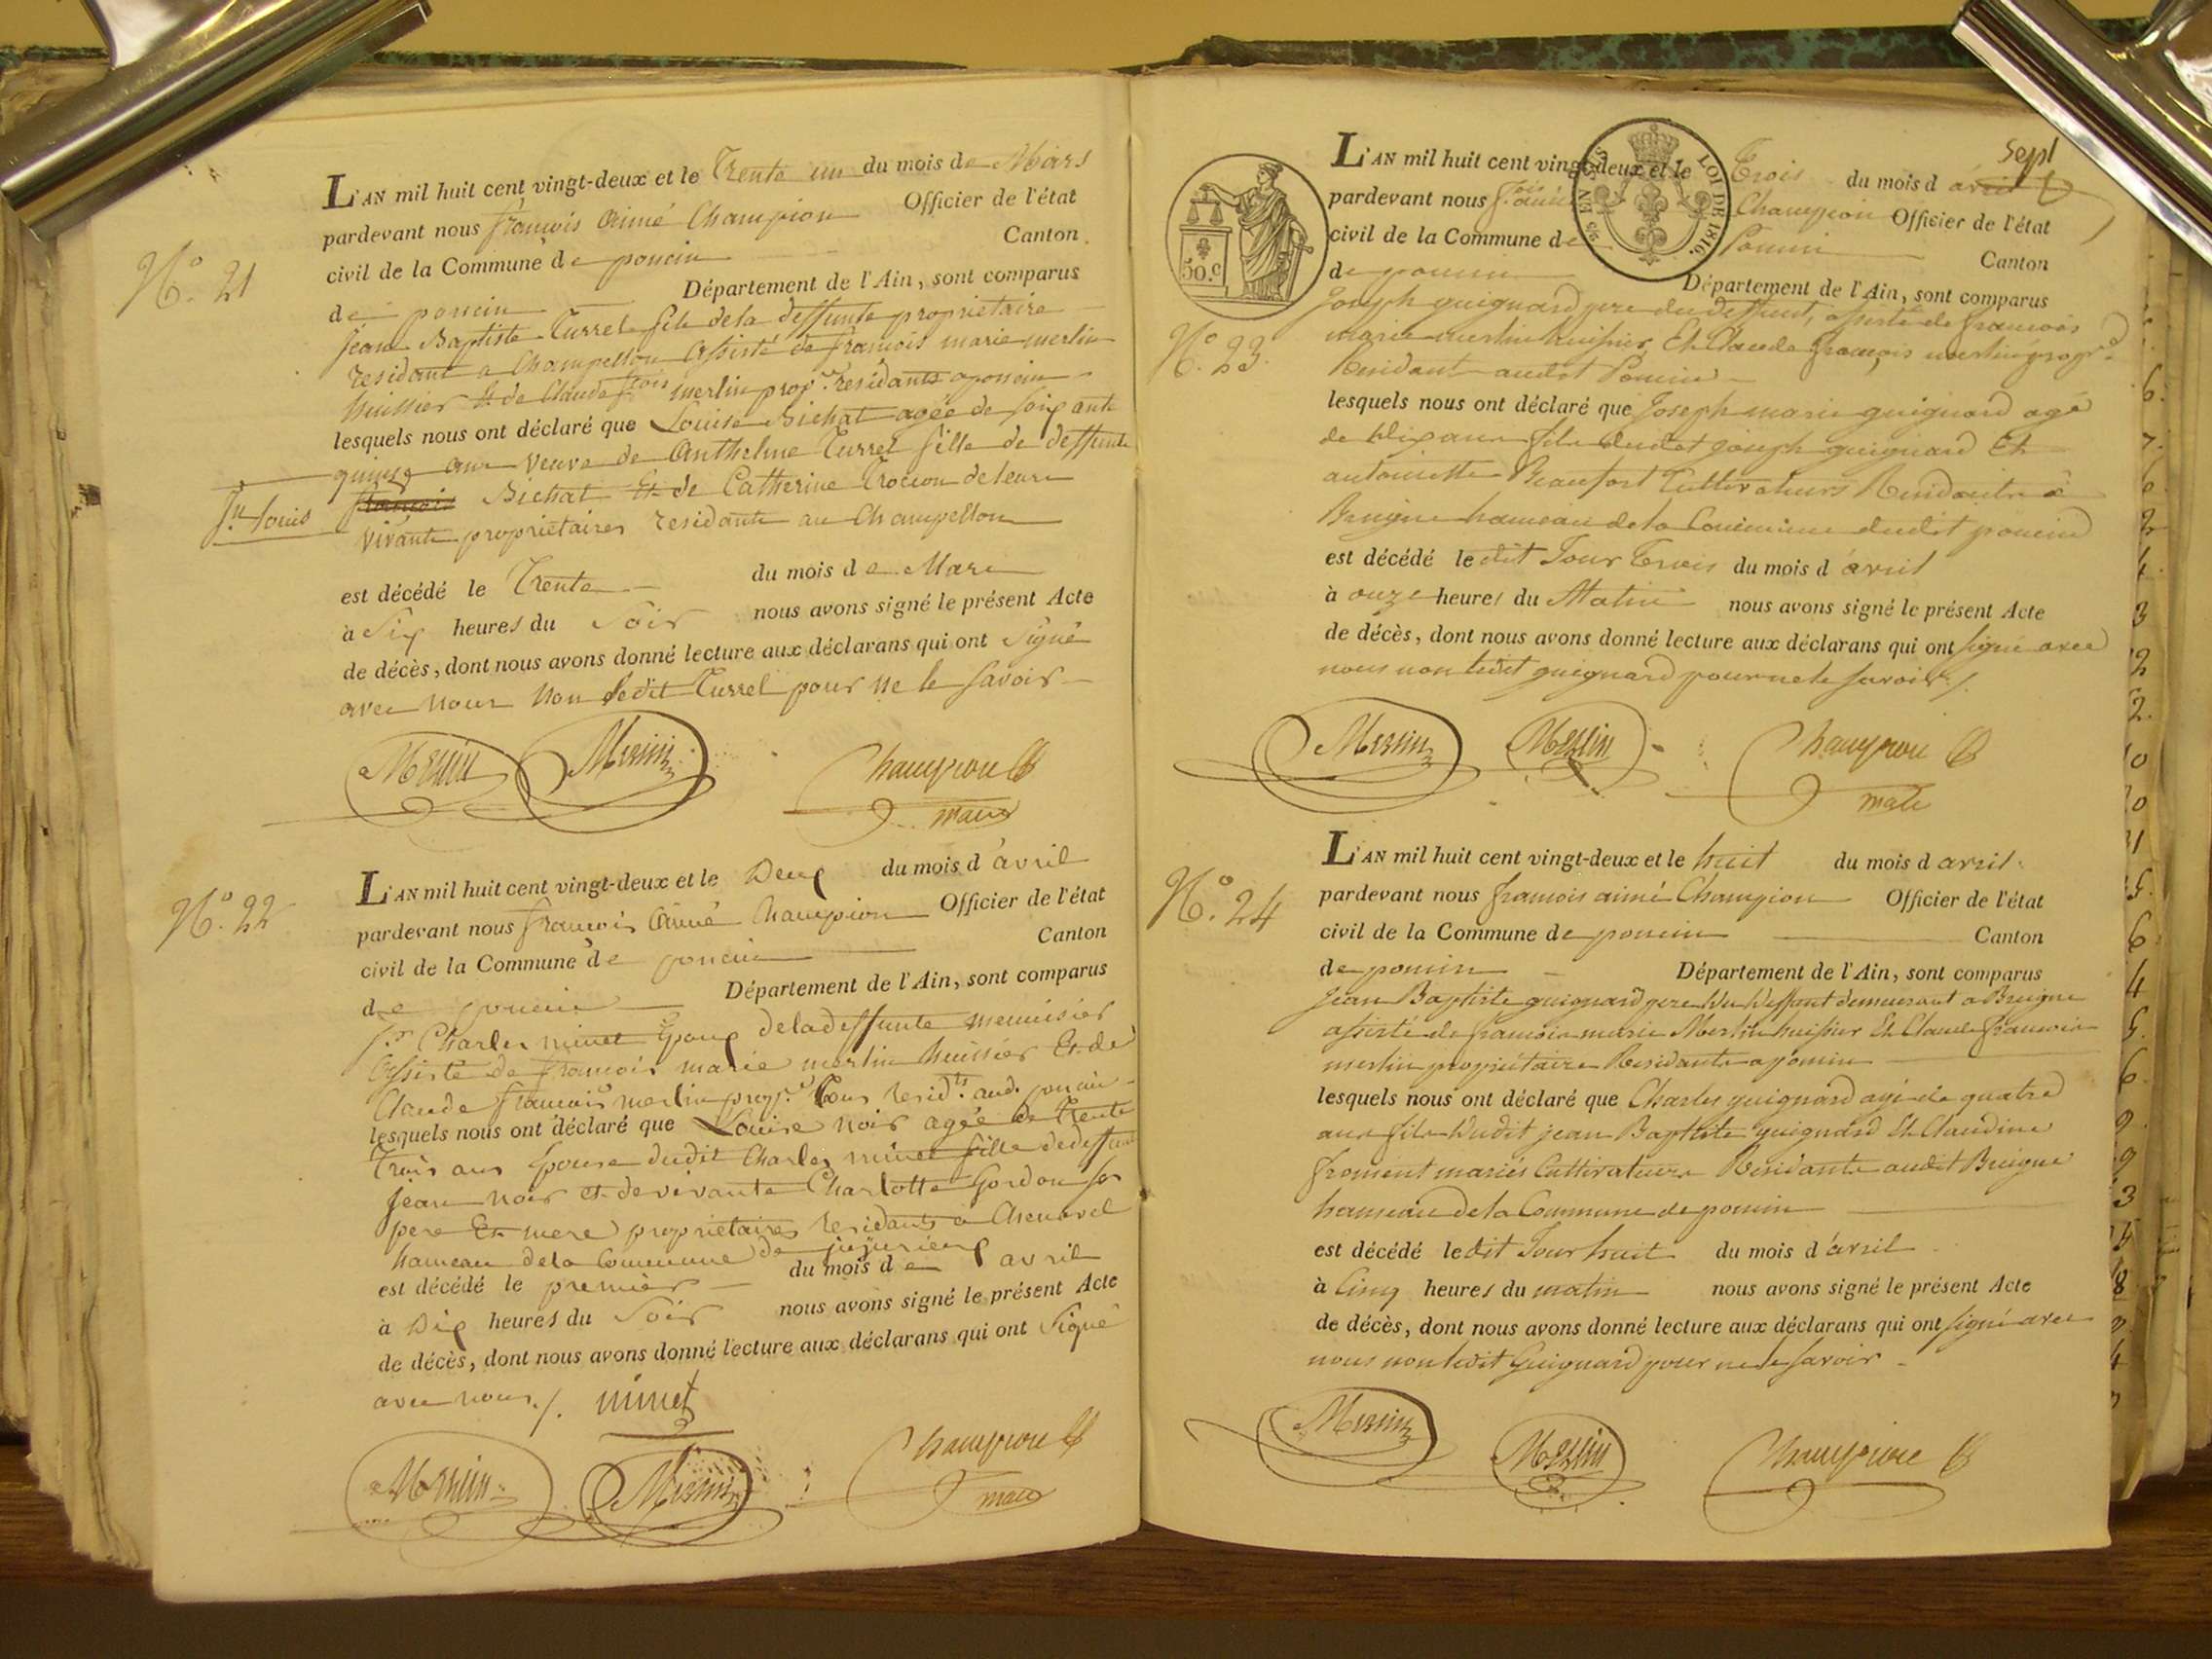 L'AN mil huit cent vingt-deux et le Trente un du mois de Mars
pardevant nous françois Aimé Champion Officier de l'état
civil de la Commune de poncin Canton
de poncin Département de l'Ain, sont comparus
N.° 21
Jean Baptiste Turrel fils de la deffunte propriétaire
résidant a Champellon assisté de françois marie merlin
huissier Et de Claude f.çois merlin prop.re résidants a poncin
lesquels nous ont déclaré que Louise Bichat agée de soixante
quinze ans veuve de Anthelme Turrel fille de deffunte
Jn Louis
françois Bichat Et de Catherine Trocion de leurs
vivants propriétaires résidants au Champellon
est décédé le Trente du mois de Mars
à Six heures du Soir nous avons signé le présent Acte
de décès, dont nous avons donné lecture aux déclarans qui ont Signé
avec nous non ledit Turrel pour ne le savoir
Merlin Merlin Champion
maire
N.° 22
L'AN mil huit cent vingt-deux et le Deux du mois d'avril
pardevant nous françois Aimé Champion Officier de l'état
civil de la Commune de poncin Canton
de poncin Département de l'Ain, sont comparus
Sr Charles minet Epoux de la deffunte menuisier
assisté de françois marie merlin huissier Et de
Claude françois merlin prop.re tous resid.ts aud. poncin
lesquels nous ont déclaré que Louise noir agée de Trente
Trois ans Epouse dudit Charles minet fille de deffunt
Jean noir et de vivante Charlotte Gordon ses
pere Et mere propriétaires residants a Chenavel
hameau de la Commune de jujurieux
est décédé le premier du mois de avril
à Dix heures du Soir nous avons signé le présent Acte
de décès, dont nous avons donné lecture aux déclarans qui ont Signé
avec nous ./. minet
Merlin Merlin Champion
maire
50.c
EN SUS
LOI DE 1816.
L'AN mil huit cent vingt-deux et le Trois du mois d avril
Sept
pardevant nous f.çois aimé Champion Officier de l'état
civil de la Commune de Poncin Canton
de poncin Département de l'Ain, sont comparus
N.° 23.
Joseph guignard pere du deffunt, assisté de françois
marie merlin huissier, Et Claude françois merlin propr.re
Residants audit Poncin
lesquels nous ont déclaré que Joseph marie guignard agé
de dix ans fils dudit joseph guignard Et
antoinette Beaufort Cultivateurs Residants à
Breigne hameau de la Commune dudit poncin
est décédé ledit Jour trois du mois d'avril
à onze heures du Matin nous avons signé le présent Acte
de décès, dont nous avons donné lecture aux déclarans qui ont signé avec
nous non ledit guignard pour ne le savoir ./.
Merlin Merlin Champion
maire
N.° 24
L'AN mil huit cent vingt-deux et le huit du mois d avril
pardevant nous françois aimé Champion Officier de l'état
civil de la Commune de poncin Canton
de poncin Département de l'Ain, sont comparus
Jean Baptiste guignard pere du deffunt demeurant a Breigne
assisté de françois marie Merlin huissier Et Claude françois
merlin propriétaire Residants a poncin
lesquels nous ont déclaré que Charles guignard agé de quatre
ans fils dudit jean Baptiste guignard Et Claudine
froment mariés Cultivateurs Residants audit Breigne
hameau de la Commune de poncin
est décédé ledit Jour huit du mois d'avril
à Cinq heures du matin nous avons signé le présent Acte
de décès, dont nous avons donné lecture aux déclarans qui ont signé avec
nous non ledit Guignard pour ne le savoir
Merlin Merlin Champion